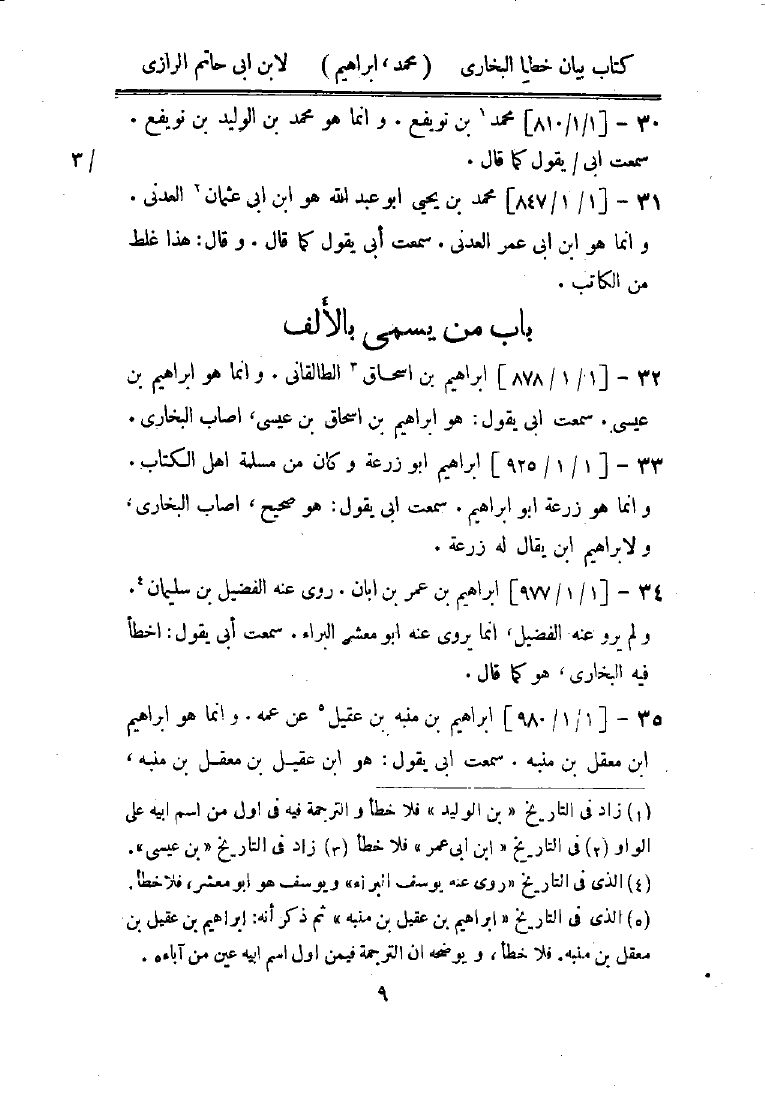 كتاب بيان خطإ البخارى (محمد، ابراهيم) لابن ابى حاتم الرازى
٣٠ – [٨١٠/١/١] محمد١ بن نويفع . و انما هو محمد بن الوليد بن نويفع .
سمعت ابى / يقول كما قال . ٣ /
٣١ – [٨٤٧/١/١] محمد بن يحيى ابو عبد الله هو ابن ابى عثمان٢ العدنى .
و انما هو ابن ابى عمر العدنى . سمعت أبى يقول كما قال . و قال: هذا غلط
من الكاتب .
باب من يسمى بالألف
٣٢ – [٨٧٨/١/١] ابراهيم بن اسحاق٣ الطالقانى . و انما هو ابراهيم بن
عيسى . سمعت ابى يقول: هو ابراهيم بن اسحاق بن عيسى، اصاب البخارى .
٣٣ – [٩٢٥/١/١] ابراهيم ابو زرعة و كان من مسلمة اهل الكتاب .
و انما هو زرعة ابو ابراهيم . سمعت ابى يقول: هو صحيح، اصاب البخارى،
و لابراهيم ابن يقال له زرعة .
٣٤ – [٩٧٧/١/١] ابراهيم بن عمر بن ابان . روى عنه الفضيل بن سليمان٤.
و لم يرو عنه الفضيل، انما يروى عنه ابو معشر البراء . سمعت أبى يقول: اخطأ
فيه البخارى، هو كما قال .
٣٥ – [٩٨٠/١/١] ابراهيم بن منبه بن عقيل٥ عن عمه . و انما هو ابراهيم
ابن معقل بن منبه . سمعت ابى يقول: هو ابن عقيل بن معقل بن منبه،
(١) زاد فى التاريخ « بن الوليد » فلا خطأ و الترجمة فيه فى اول من اسم ابيه على
الواو (٢) فى التاريخ « ابن ابى عمر » فلا خطأ (٣) زاد فى التاريخ « بن عيسى».
(٤) الذى فى التاريخ «روى عنه يوسف البراء» و يوسف هو ابو معشر، فلا خطأ.
(٥) الذى فى التاريخ « ابراهيم بن عقيل بن منبه » ثم ذكر أنه: ابراهيم بن عقيل بن
معقل بن منبه. فلا خطأ، و يوضحه ان الترجمة فيمن اول اسم ابيه عين من آباءه .
٩